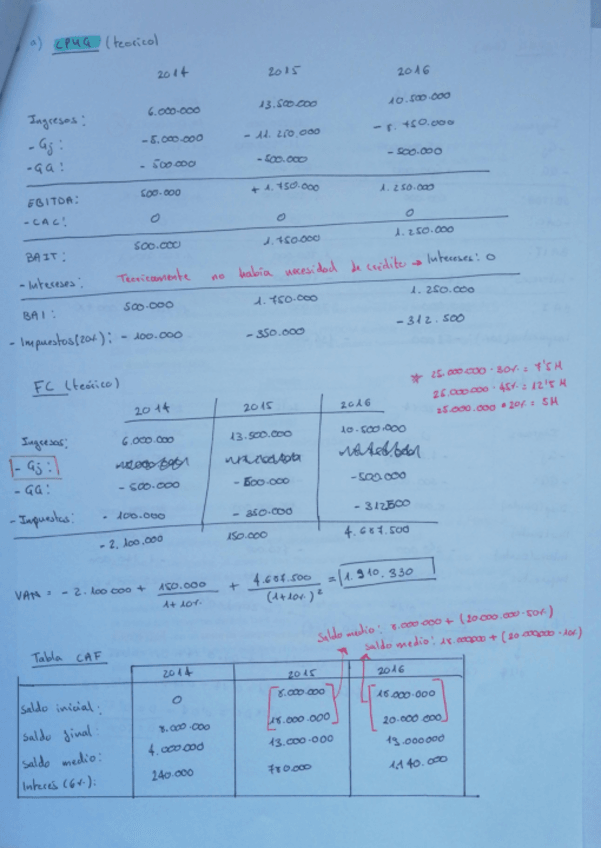 a) CPYG (teorico)
2014 2015 2016
Ingresos: 6.000.000 13.500.000 10.500.000
- Gj: -5.000.000 - 11.250.000 - 8.750.000
- GA: - 500.000 -500.000 -500.000
EBITDA: 500.000 + 1.750.000 1.250.000
- CAC: 0 0 0
BAIT: 500.000 1.750.000 1.250.000
- Intereses: Teoricamente no había necesidad de crédito → Intereses: 0
BAI: 500.000 1.750.000 1.250.000
- Impuestos (20%): - 100.000 -350.000 -312.500
* 25.000.000 · 30% = 7'5 M
25.000.000 · 45% = 12'5 M
25.000.000 * 20% = 5M
FC (teórico)
2014 2015 2016
Ingresos: 6.000.000 13.500.000 10.500.000
- Gj:
- GA: - 500.000 - 500.000 -500.000
- Impuestos: - 100.000 - 350.000 - 312.500
- 2.100.000 150.000 4.687.500
VAN = - 2.100.000 + 150.000 / 1 + 10% + 4.687.500 / (1+10%)² = 1.910.330
Saldo medio: 8.000.000 + (20.000.000 · 50%)
Saldo medio: 18.000.000 + (20.000.000 · 10%)
Tabla CAF
2014 2015 2016
Saldo inicial: 0 8.000.000 18.000.000
Saldo final: 8.000.000 18.000.000 20.000.000
Saldo medio: 4.000.000 13.000.000 19.000000
Interés (6%): 240.000 780.000 1.140.000